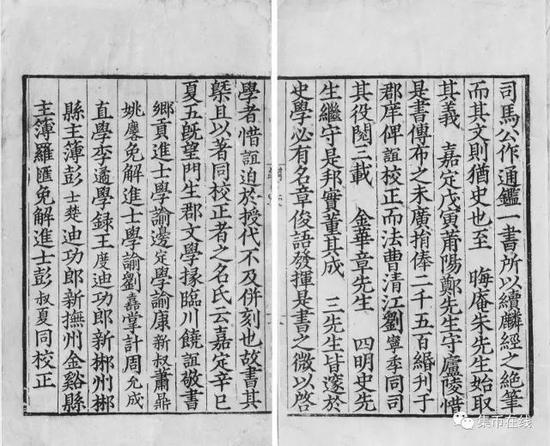 司馬公作通鑑一書所以續麟經之絶筆
而其文則猶史也至 晦庵朱先生始取
其義 嘉定戊寅莆陽鄭先生守廬陵惜
是書傳布之未廣捐俸二千五百緡刊于
郡庠俾誼校正而法曹清江劉寧季同司
其役閲三載 金華章先生 四明史先
生繼守是邦實董其成 三先生皆邃於
史學必有名章俊語發揮是書之微以啓
學者惜誼迫於授代不及併刻也故書其
槩且以著同校正者之名氏云嘉定辛巳
夏五旣望門生郡文學掾臨川饒誼敬書
鄉貢進士學諭邊定學諭康新叔蕭鼎
姚免解進士學諭劉嘉掌計周允成
直學李學録王度迪功郎新郴州郴
縣主薄彭士迪功郎新撫州金谿縣
主薄羅匯免解進士彭叔夏同校正
集市在线